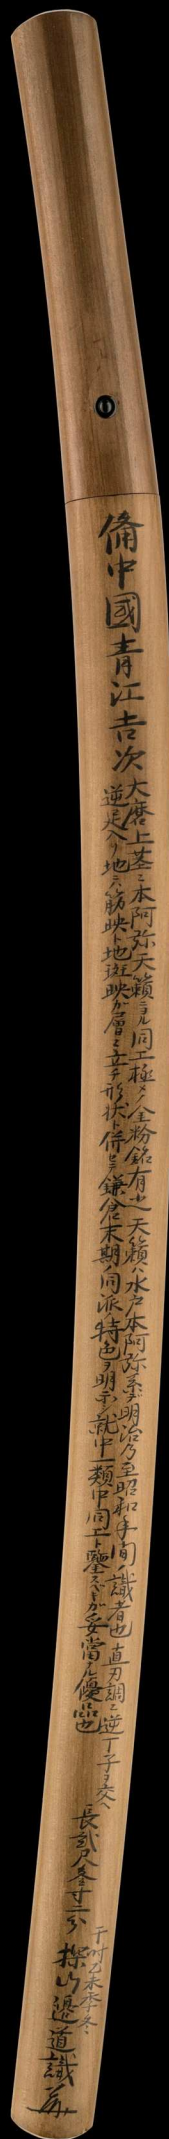 備中國青江吉次
大磨上茎ニ本阿弥天籟ニヨル同工極メノ金粉銘有之天籟ハ水戸本阿弥系ダ明治乃至昭和年間ノ識者也直刃調ニ逆丁子ヲ交ヘ
逆足入リ地ニ筋映ト地斑映ガ層々立チ形状ト併セテ鎌倉末期ノ同派ノ特色ヲ明示シ就中一類中同工ト鑒スベキガ妥當ナル優品也
長貳尺参寸二分
于時乙未季冬
探山邉道識